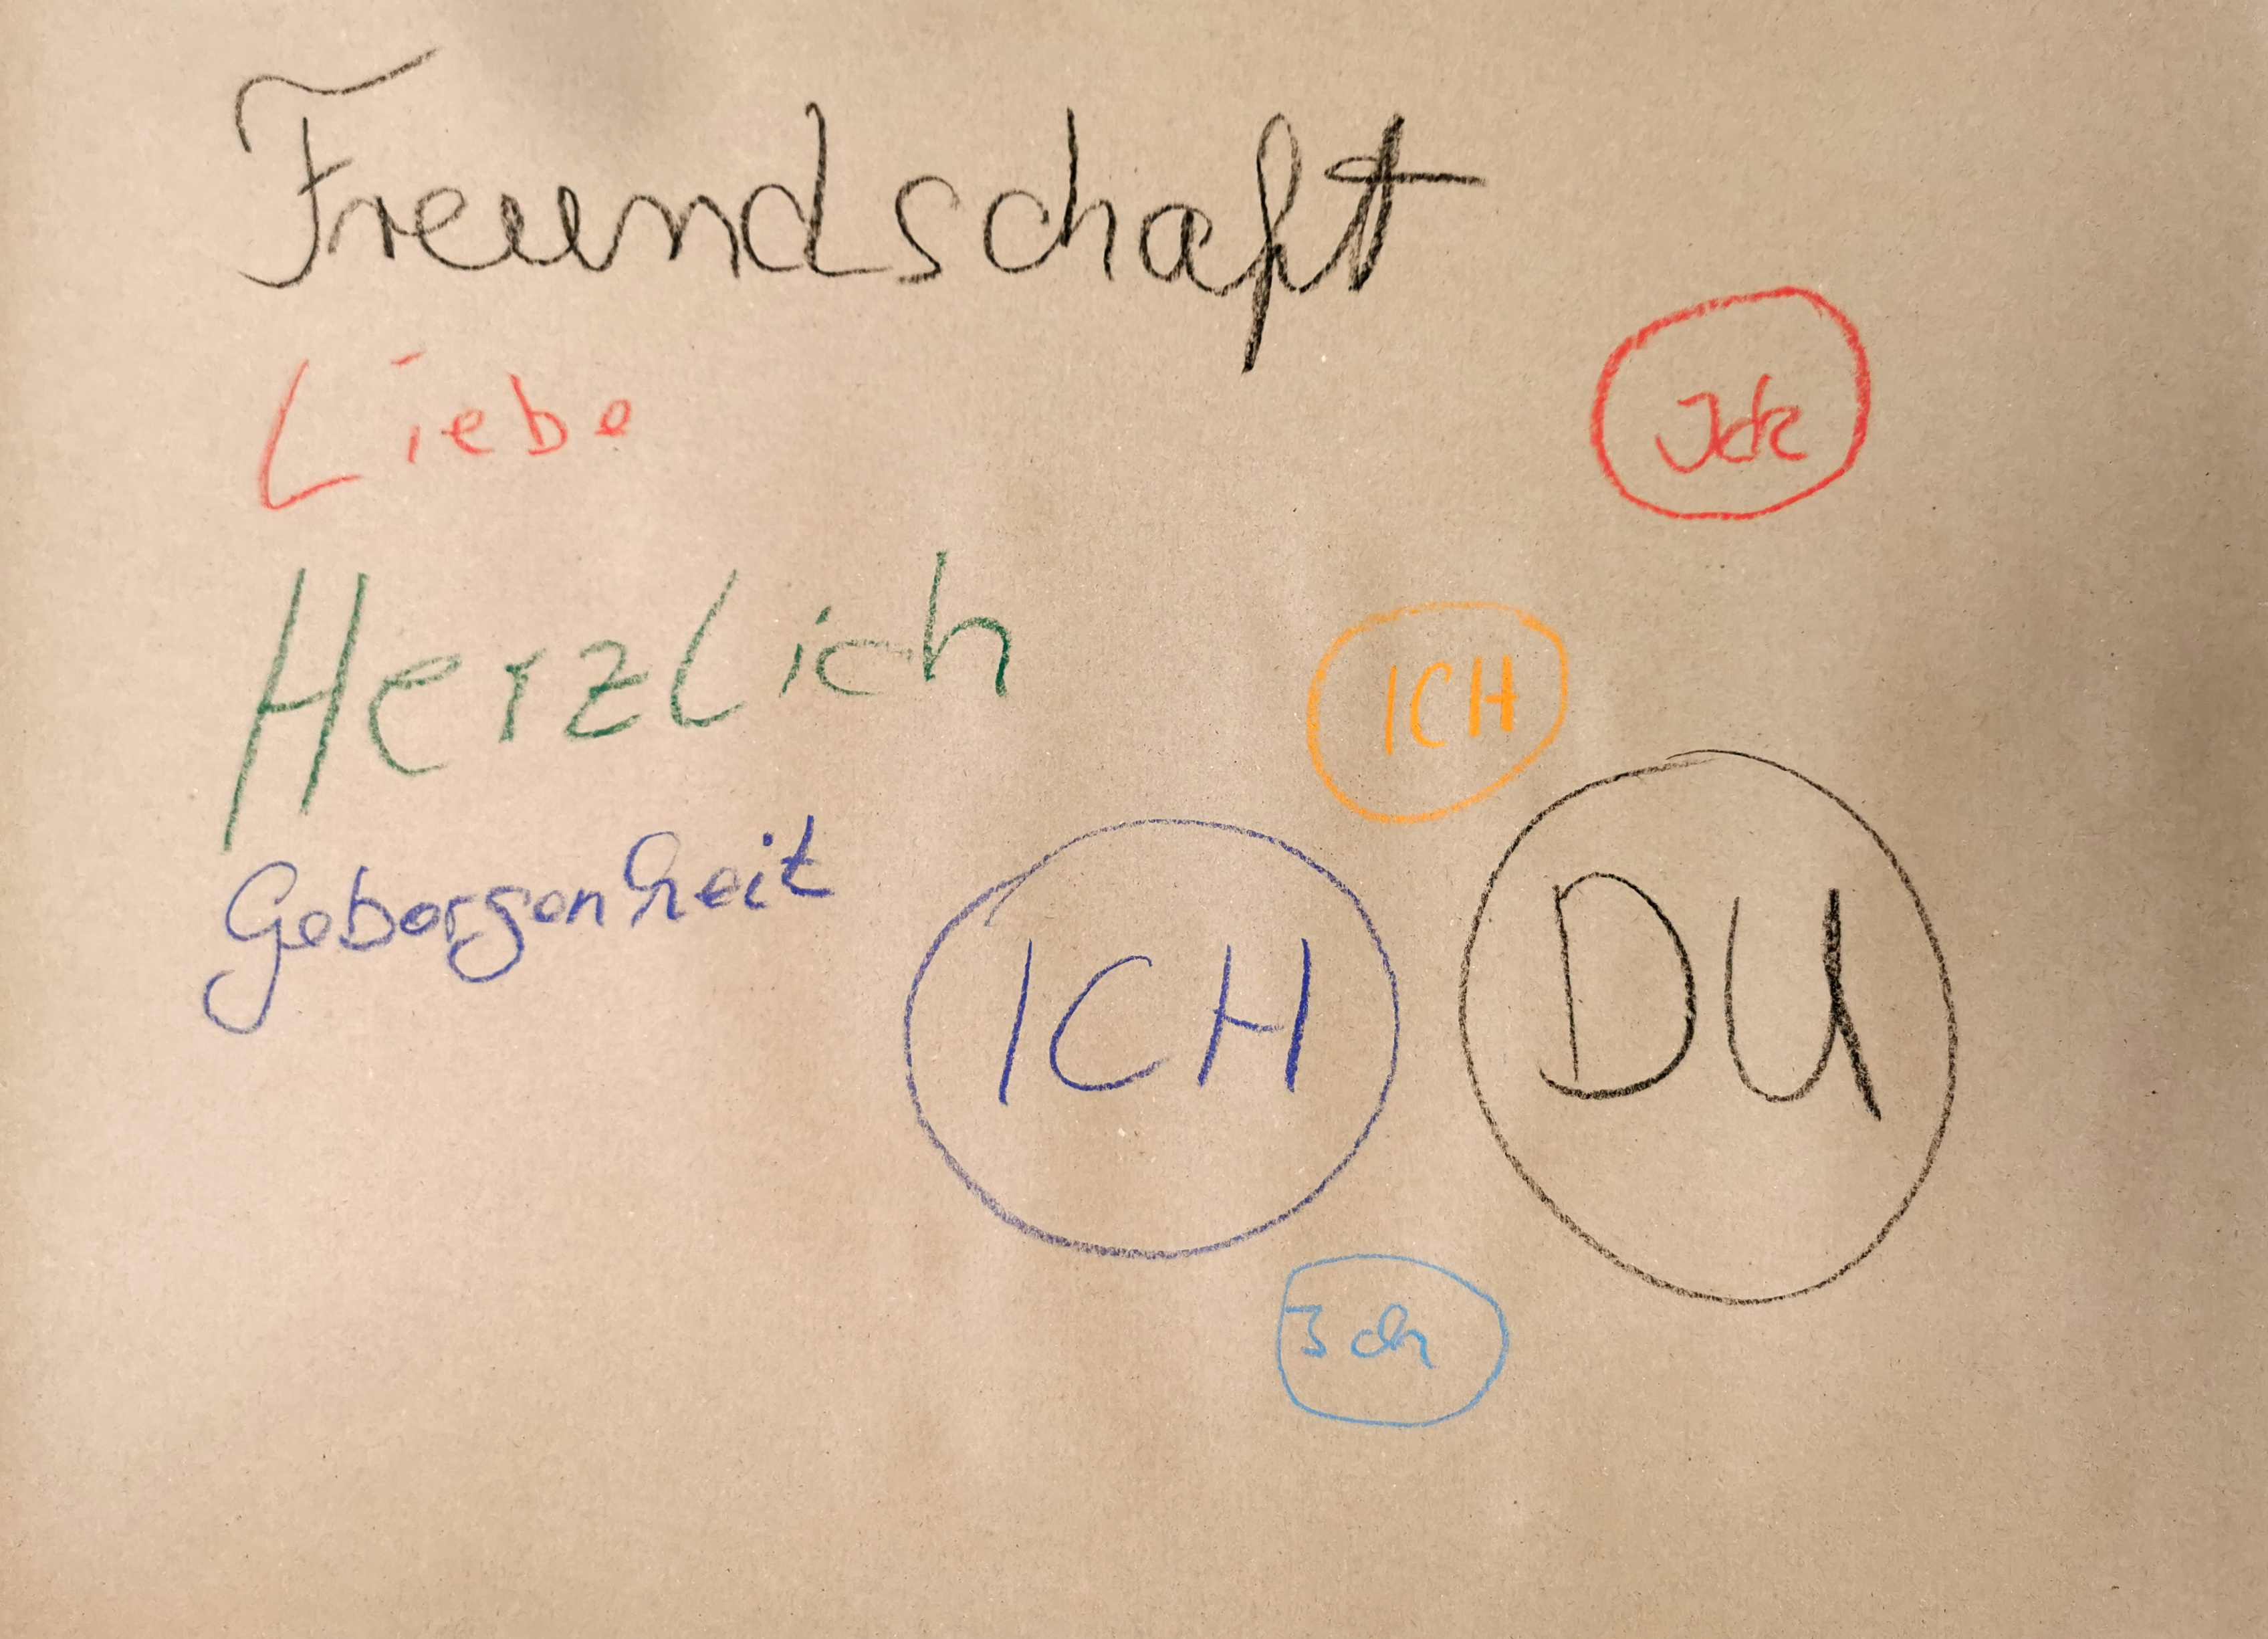 Freundschaft
Liebe
Ick
Herzlich
ICH
Geborgenheit
ICH
DU
Ich